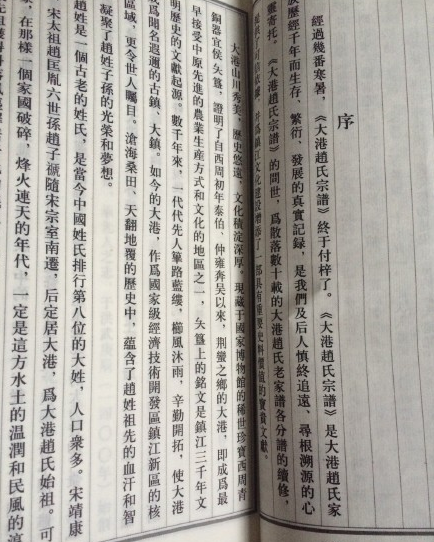 序
經過幾番寒暑，《大港趙氏宗譜》終于付梓了。《大港趙氏宗譜》是大港趙氏家
族歷經千年而生存、繁衍、發展的真實記録，是我們及后人慎終追遠、尋根溯源的心
靈寄托。《大港趙氏宗譜》的問世，爲散落數十載的大港趙氏老家譜各分譜的續修，
提供了可靠依據，并爲鎮江文化建設增添了一部具有重要史料價值的寶貴文獻。
大港山川秀美，歷史悠遠，文化積淀深厚。現藏于國家博物館的稀世珍寶西周青
銅器宜侯夨簋，證明了自西周初年泰伯、仲雍奔吴以來，荆蠻之鄉的大港，即成爲最
早接受中原先進的農業生産方式和文化的地區之一，夨簋上的銘文是鎮江三千年文
明歷史的文獻起源。數千年來，一代代先人篳路藍縷，櫛風沐雨，辛勤開拓，使大港
成爲聞名遐邇的古鎮、大鎮。如今的大港，作爲國家級經濟技術開發區鎮江新區的核
心區域，更令世人矚目。滄海桑田、天翻地覆的歷史中，藴含了趙姓祖先的血汗和智
慧，凝聚了趙姓子孫的光榮和夢想。
趙姓是一個古老的姓氏，是當今中國姓氏排行第八位的大姓，人口衆多。宋靖康
宋太祖趙匡胤六世孫趙子禠隨宋宗室南遷，后定居大港，爲大港趙氏始祖。可
，在那樣一個家國破碎，烽火連天的年代，一定是這方水土的温潤和民風的淳